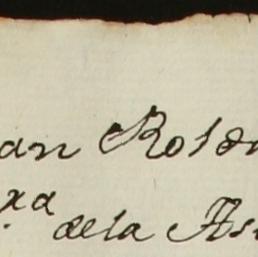 an Rold
xa dela As